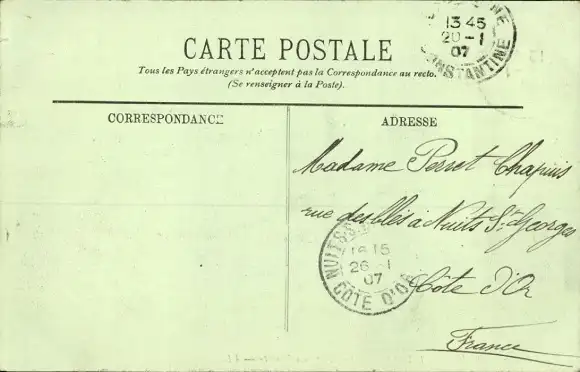 NE
13 45
20 -1
07
CONSTANTINE
CARTE POSTALE
Tous les Pays étrangers n'acceptent pas la Correspondance au recto.
(Se renseigner à la Poste).
CORRESPONDANCE
ADRESSE
Madame Perret Chapuis
rue des blés à Nuits St Georges
Côte d'Or
France
NUITS S
16 15
26 -1
07
CÔTE D'OR